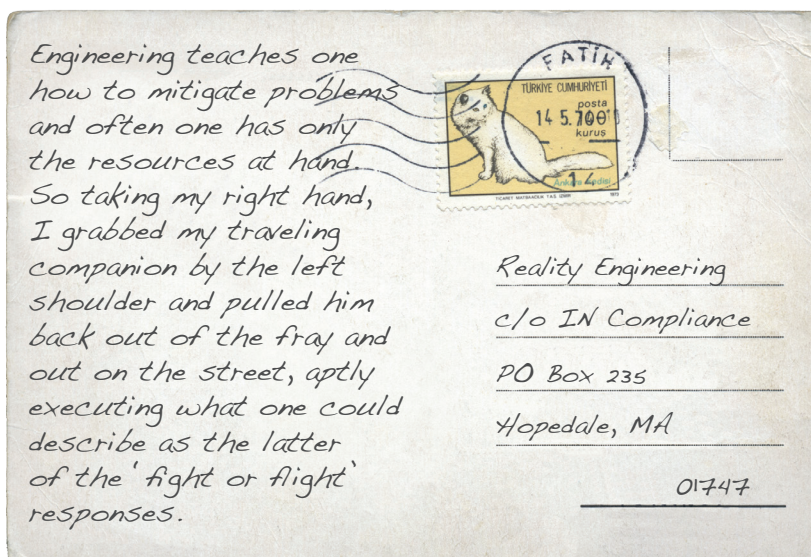 Engineering teaches one
how to mitigate problems
and often one has only
the resources at hand.
So taking my right hand,
I grabbed my traveling
companion by the left
shoulder and pulled him
back out of the fray and
out on the street, aptly
executing what one could
describe as the latter
of the 'fight or flight'
responses.
FATİH
TÜRKİYE CUMHURİYETİ
posta
14 5.
kuruş
14
Ankara kedisi
1973
Reality Engineering
c/o IN Compliance
PO Box 235
Hopedale, MA
01747